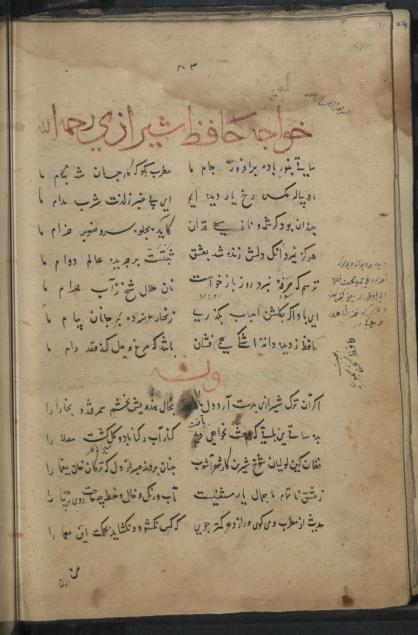 ٨٣
خواجه حافظ شیرازی رحمه الله
ساقی بنور باده برافروز جام ما مطرب بگو که کار جهان شد بکام ما
ما در پیاله عکس رخ یار دیده ایم ای بی خبر ز لذت شرب مدام ما
چندان بود کرشمه و ناز سهی قدان کاید بجلوه سرو صنوبر خرام ما
هرگز نمیرد آنکه دلش زنده شد بعشق ثبتست بر جریده عالم دوام ما
ترسم که صرفه نبرد روز بازخواست نان حلال شیخ ز آب حرام ما
ای باد اگر بگلشن احباب بگذری زنهار عرضه ده بر جانان پیام ما
حافظ ز دیده دانه اشکی همی فشان باشد که مرغ وصل کند قصد دام ما
وله
اگر آن ترک شیرازی بدست آرد دل ما را بخال هندویش بخشم سمرقند و بخارا را
بده ساقی می باقی که در جنت نخواهی یافت کنار آب رکناباد و گلگشت مصلا را
فغان کین لولیان شوخ شیرین کار شهرآشوب چنان بردند صبر از دل که ترکان خوان یغما را
ز عشق ناتمام ما جمال یار مستغنیست بآب و رنگ و خال و خط چه حاجت روی زیبا را
حدیث از مطرب و می گوی و راز دهر کمتر جوی که کس نگشود و نگشاید بحکمت این معما را
من